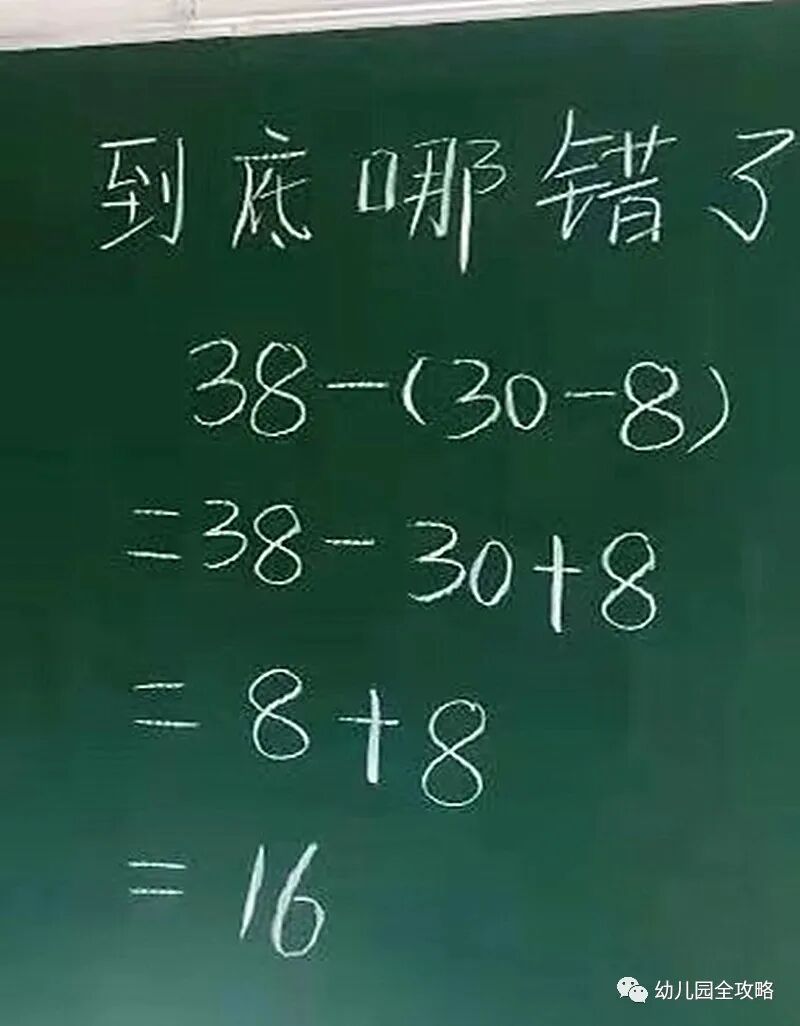 到底哪错了
38-(30-8)
=38-30+8
=8+8
=16
幼儿园全攻略